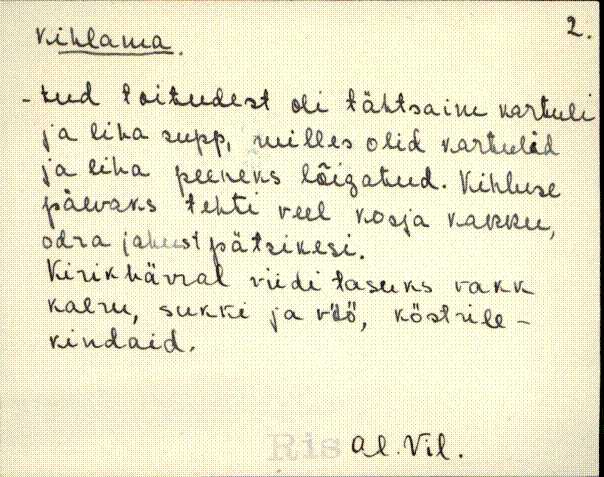 Kihlama.
2.
- tud toitudest oli tähtsaim kartuli
ja liha supp, milles olid kartulid
ja liha peeneks lõigatud. Kihluse
päevaks tehti veel kosja kakku,
odra jahust pätsikesi.
Kirikhärral viidi tasuks vakk
kaeru, sukki ja vöö, köstrile -
kindaid.
Ris
Al. Vil.